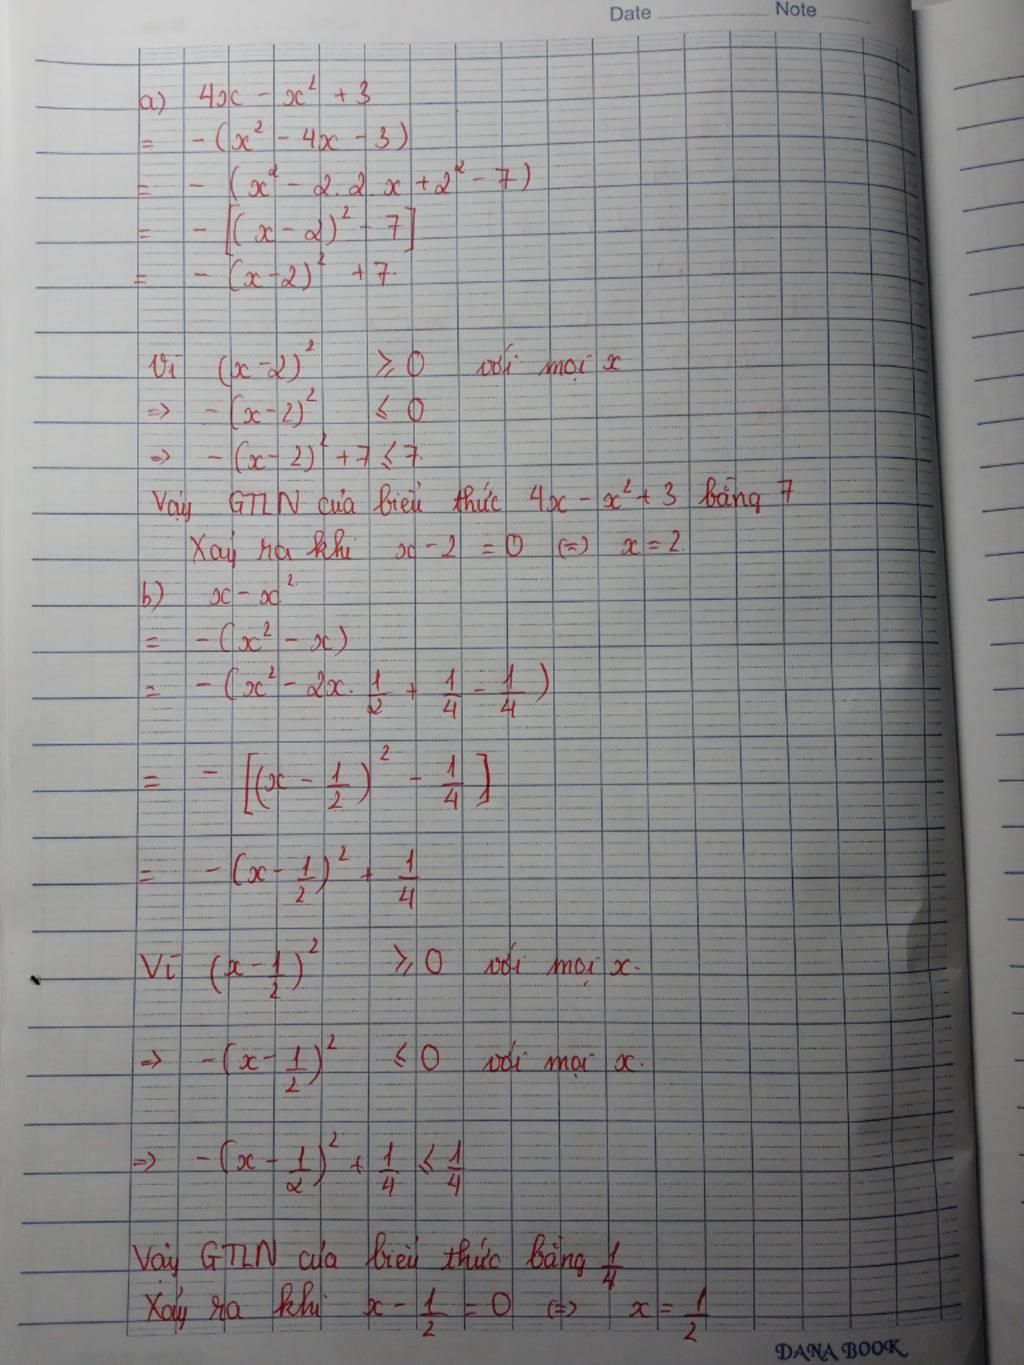 Date Note
a) 4x - x² + 3
= - (x² - 4x - 3)
= - (x² - 2.2 x + 2² - 7)
= - [(x - 2)² - 7]
= - (x - 2)² + 7.
Vì (x - 2)² ⩾ 0 với mọi x
=> - (x - 2)² ⩽ 0
=> - (x - 2)² + 7 ⩽ 7.
Vậy GTLN của biểu thức 4x - x² + 3 bằng 7
Xảy ra khi x - 2 = 0 (=) x = 2.
b) x - x²
= - (x² - x)
= - (x² - 2x. 1/2 + 1/4 - 1/4)
= - [(x - 1/2)² - 1/4]
= - (x - 1/2)² + 1/4
Vì (x - 1/2)² ⩾ 0 với mọi x.
=> - (x - 1/2)² ⩽ 0 với mọi x.
=> - (x - 1/2)² + 1/4 ⩽ 1/4
Vậy GTLN của biểu thức bằng 1/4
Xảy ra khi x - 1/2 = 0 (=) x = 1/2
DANA BOOK